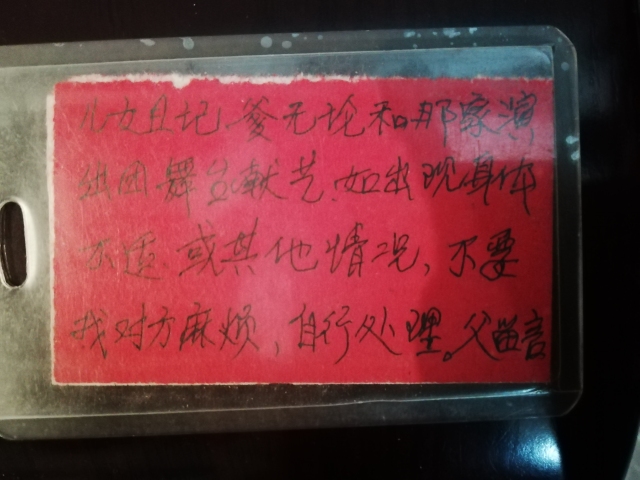 儿女且记爹无论和那家演
组团舞台献艺.如出现身体
不适或其他情况,不要
找对方麻烦,自行处理。父留言